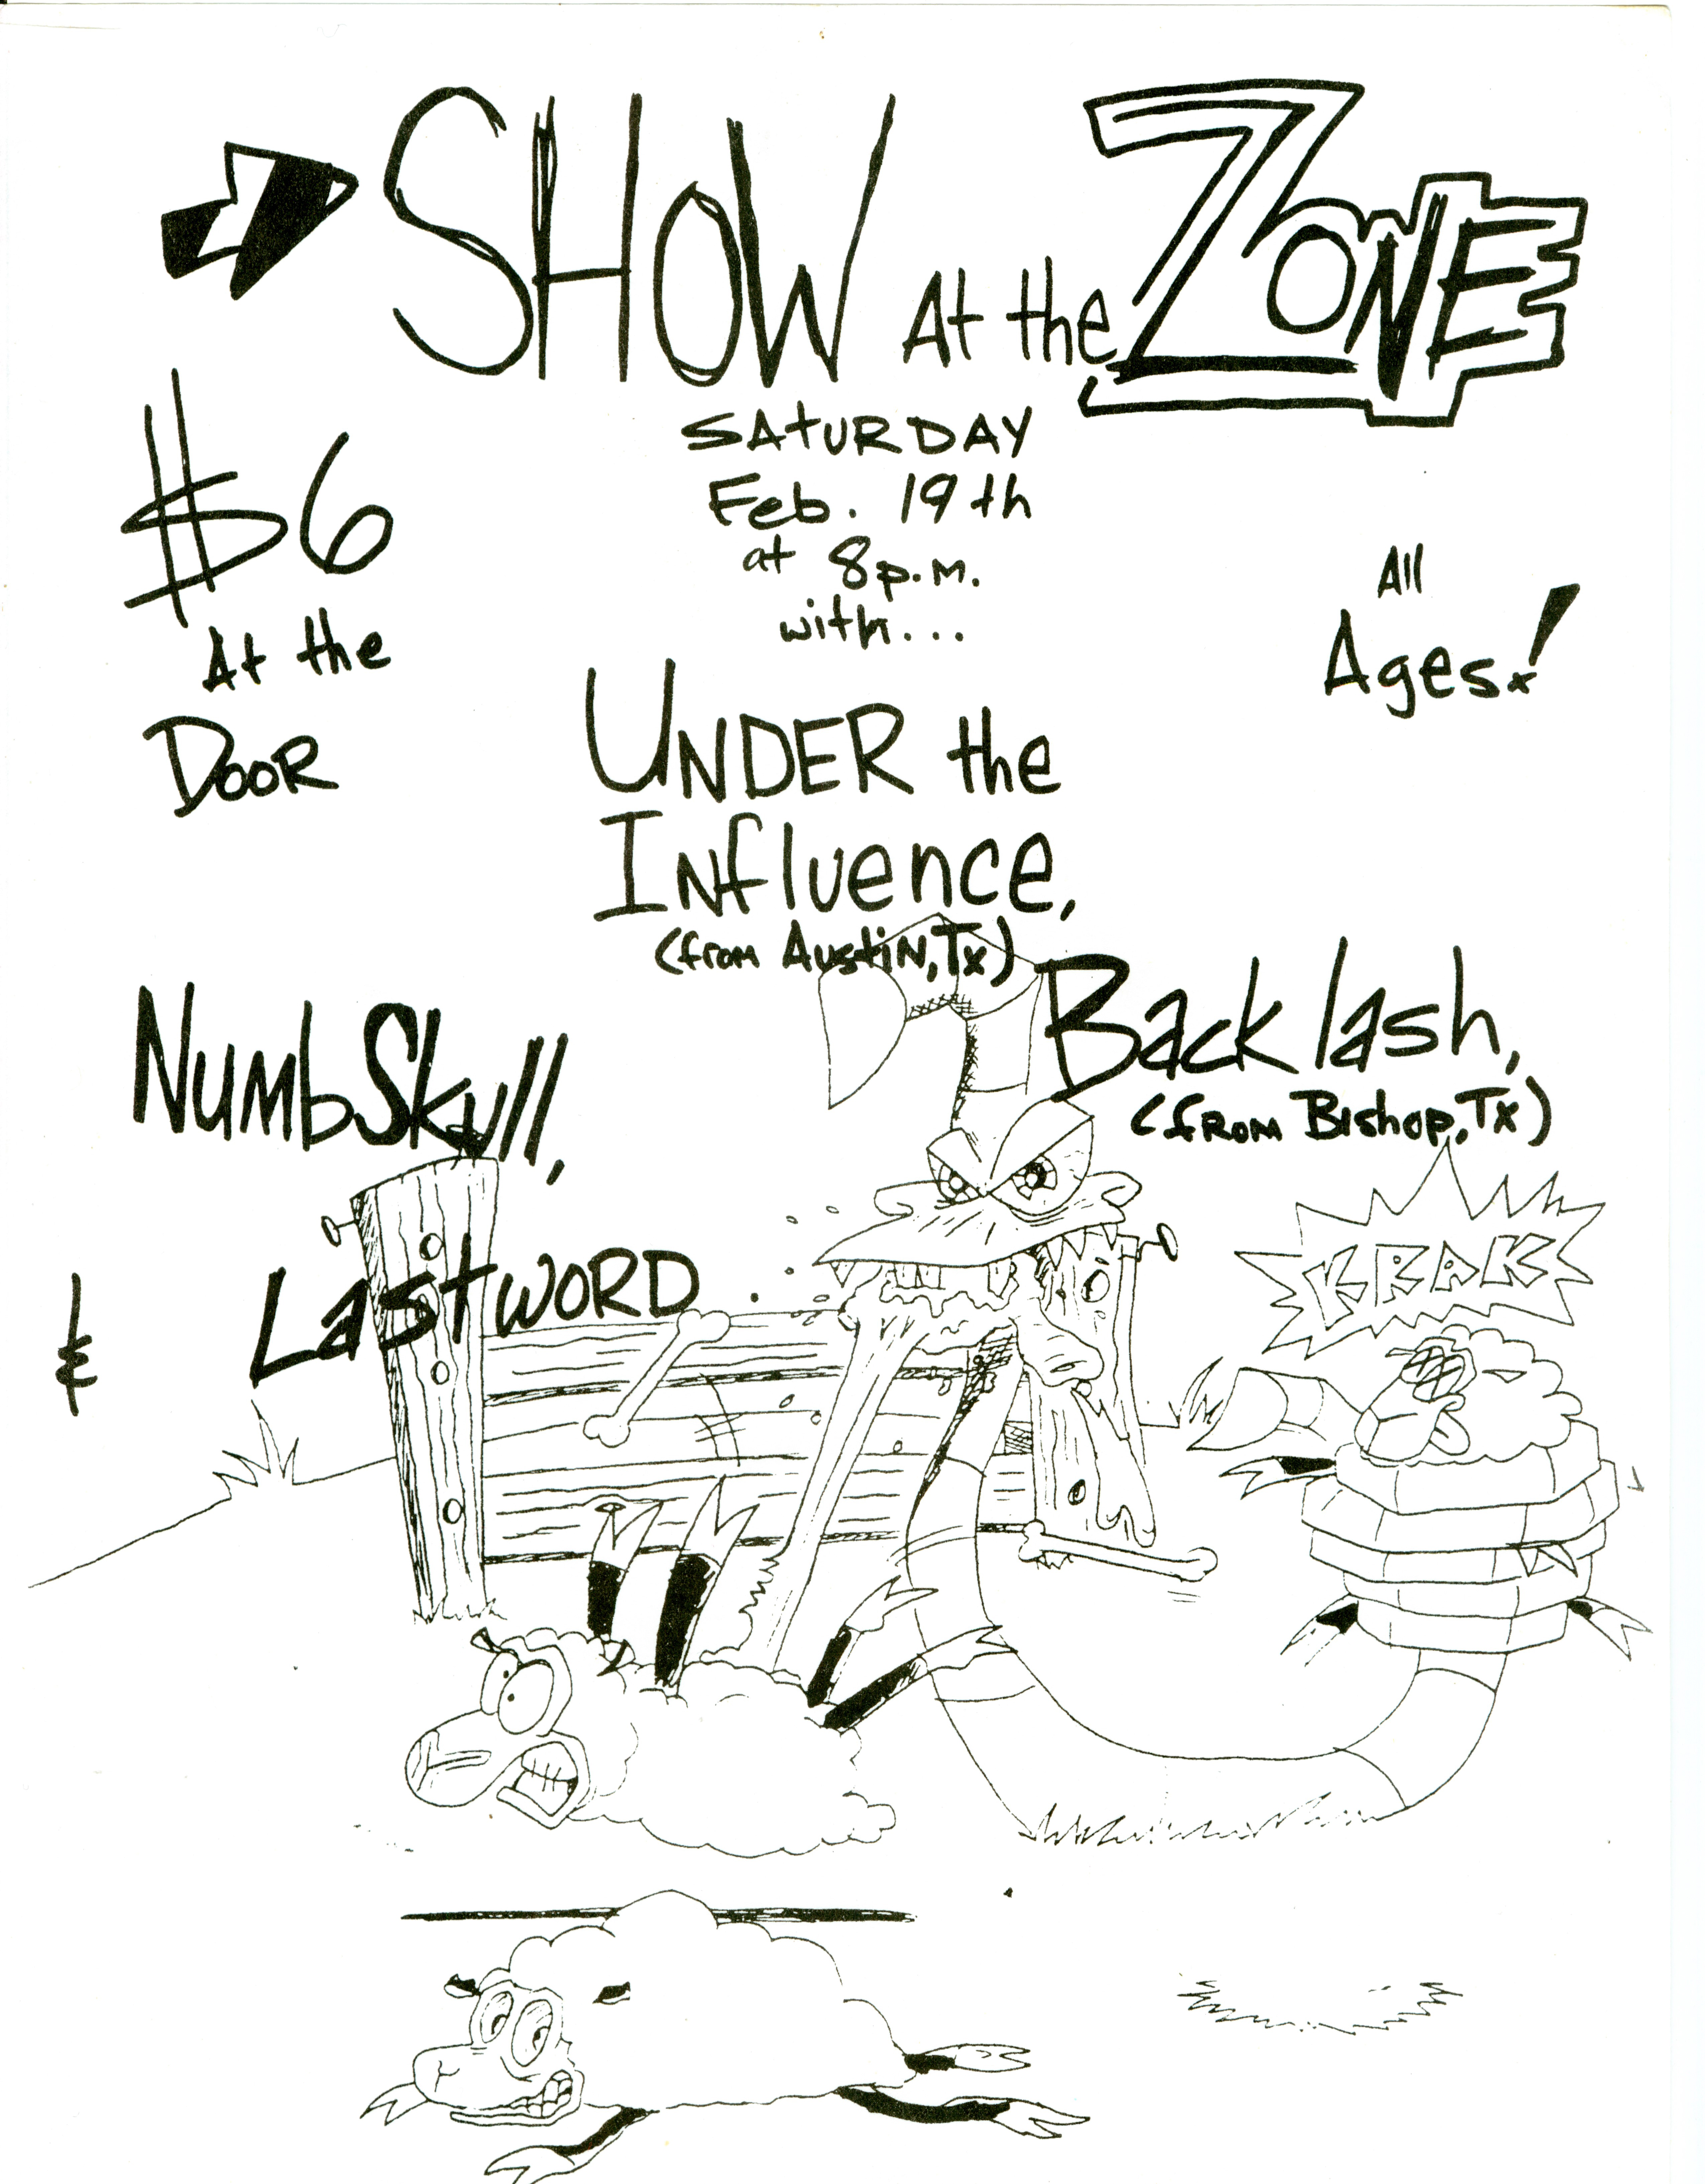 SHOW At the ZONE
$6 At the DOOR
SATURDAY
Feb. 19th
at 8p.m.
with...
All Ages!
UNDER the
Influence,
(from Austin, Tx)
NumbSkull,
Backlash,
(from Bishop, Tx)
& Lastword.
KRAK